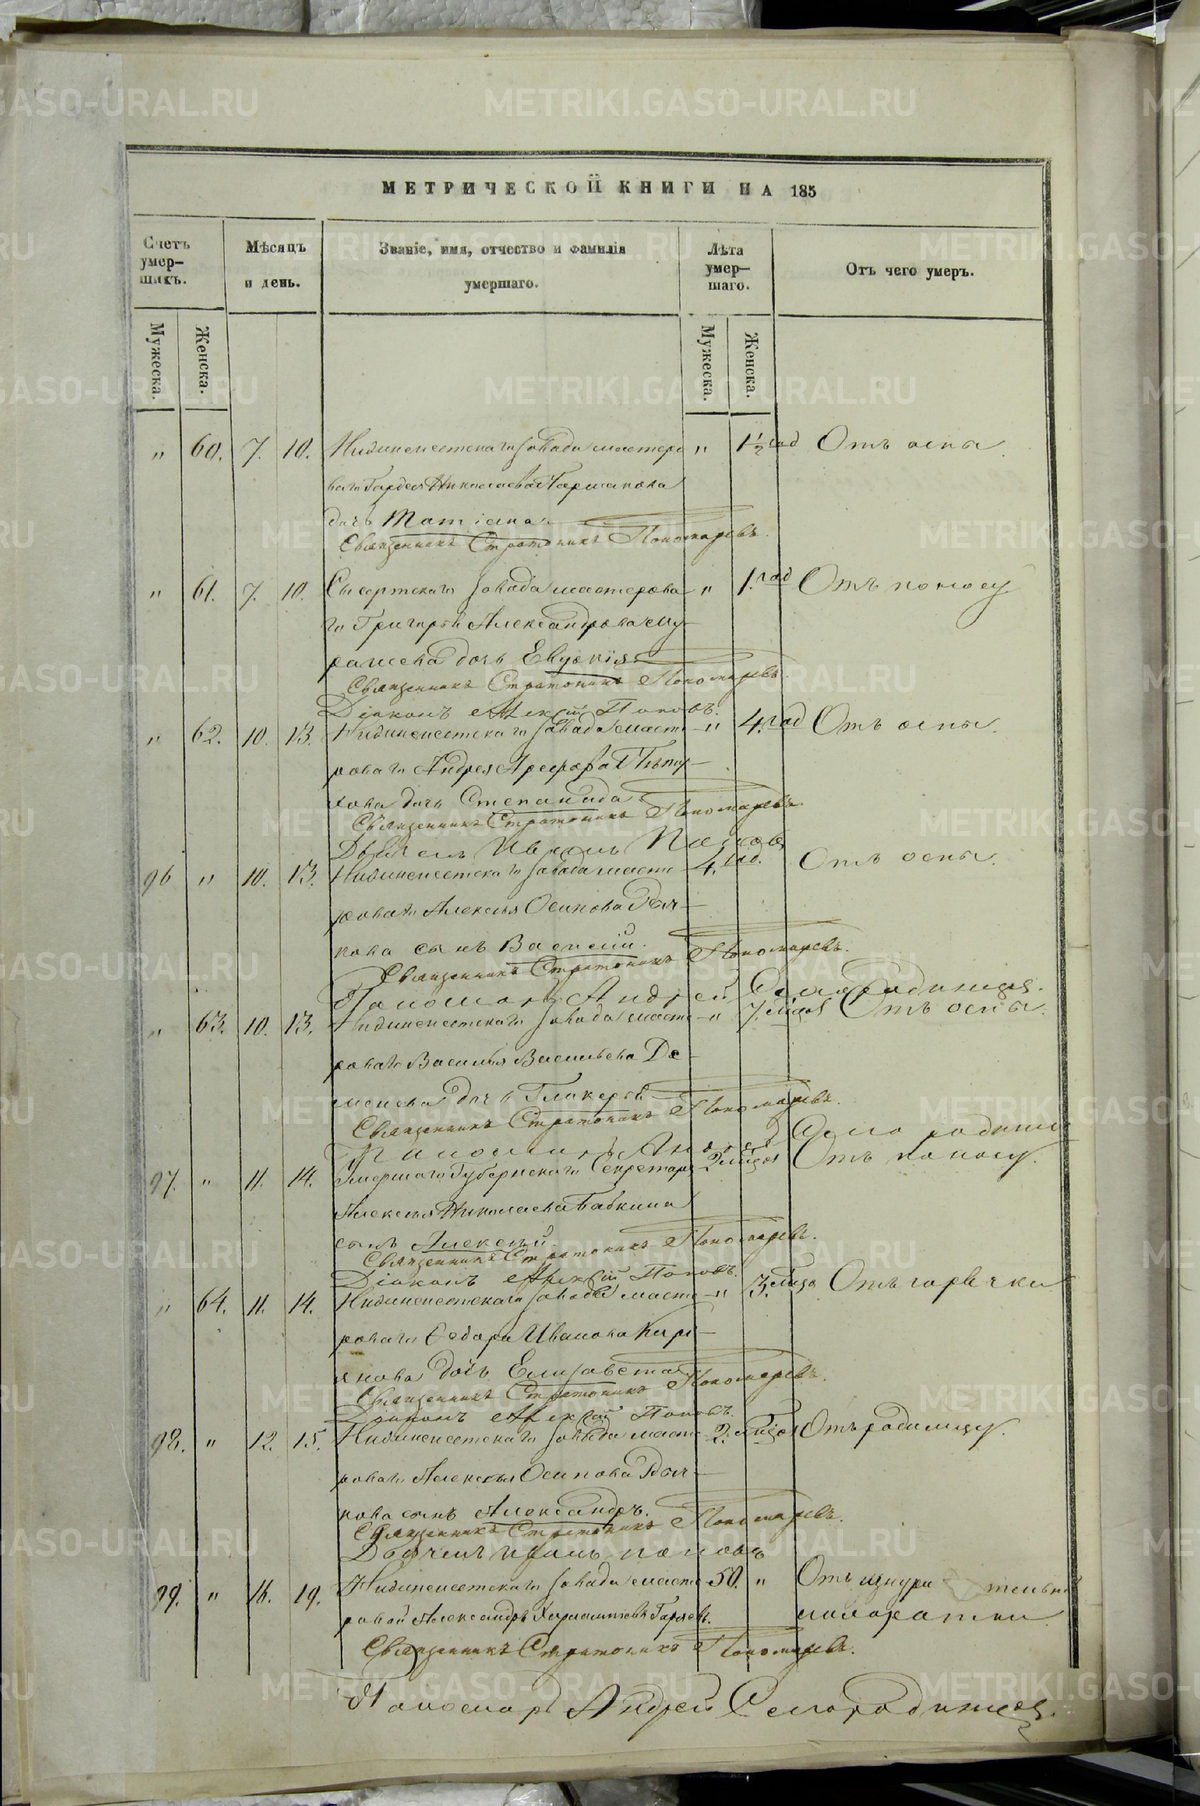 МЕТРИЧЕСКОЙ КНИГИ НА 185
Счетъ умер-шихъ.
Мѣсяцъ и день.
Званіе, имя, отчество и фамилія умершаго.
Лѣта умер-шаго.
Отъ чего умеръ.
Мужеска.
Женска.
Мужеска.
Женска.
" 60. 7. 10. Нижнеисетскаго завода мастеро " 1½ год Отъ оспы.
ваго Гордея Николаева
дочь Татіана
Священникъ Стратоникъ Пономаревъ.
" 61. 7. 10. Сысертскаго завода мастерова " 1. год Отъ поносу
го Григорія Александрова Му-
дочь Евдокія
Священникъ Стратоникъ Пономаревъ.
Діаконъ Алексій Поповъ.
" 62. 10. 13. Нижнеисетскаго завода масте " 4. год Отъ оспы.
роваго Андрея Арефьева
дочь Степанида
Священникъ Стратоникъ Пономаревъ
Дьячекъ Иванъ Поповъ
96 " 10. 13. Нижнеисетскаго завода масте 4. год. Отъ оспы.
роваго Алексѣя Осипова Рыч-
кова сынъ Василій.
Священникъ Стратоникъ Пономаревъ.
Пономарь Андрей
" 63. 10. 13. Нижнеисетскаго завода масте " 7. Отъ оспы.
роваго Василья Васильева Де-
ментьева дочь Гликерія
Священникъ Стратоникъ Пономаревъ.
Пономарь Андрей
97. " 11. 14. Умершаго Губернскаго Секретаря 2 Отъ поносу.
Алексѣя Николаева Бабкина
сынъ Алексѣй
Священникъ Стратоникъ Пономаревъ.
Діаконъ Алексій Поповъ.
" 64. 11. 14. Нижнеисетскаго завода масте " 3. Отъ горячки
роваго Ѳедора Иванова
дочь Елизавета
Священникъ Стратоникъ Пономаревъ.
Діаконъ Алексій Поповъ.
98. " 12. 15. Нижнеисетскаго завода масте 2. Отъ родимцу.
роваго Алексѣя Осипова Рыч-
кова сынъ Александръ.
Священникъ Стратоникъ Пономаревъ.
Дьячекъ Иванъ Поповъ
99. " 18. 19. Нижнеисетскаго завода масте 50. " Отъ изнури тельной
ровой Александръ лихорадки
Священникъ Стратоникъ Пономаревъ.
Пономарь Андрей
METRIKI.GASO-URAL.RU